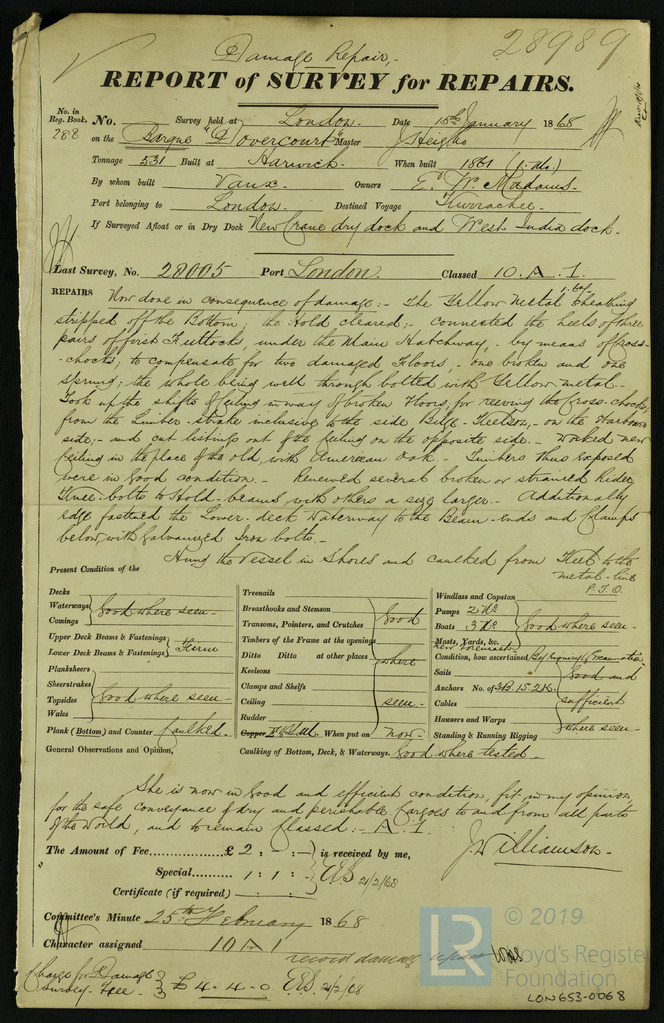 28989
Damage Repair,-
REPORT of SURVEY for REPAIRS.
No. in Reg. Book. No. Survey held at London. Date 15th January 1868
288 on the Barque "Dovercourt" Master J Heighs
Tonnage 531 Built at Harwich. When built 1861 (7. Mo.)
By whom built Vaux. Owners E. Wm. Madams.
Port belonging to London. Destined Voyage Kurrachee.
If Surveyed Afloat or in Dry Dock New Crane dry dock and West India dock.
Last Survey, No. 28005 Port London Classed 10. A. 1.
REPAIRS Now done in consequence of damage:- The Yellow Metal Sheathing
stripped off the Bottom; the Hold cleared;- connected the heels of three
pairs of first Futtocks, under the Main Hatchway,- by means of Cross-
-chocks; to compensate for two damaged Floors,- one broken and one
sprung; the whole being well through bolted with Yellow metal.-
Took up the shifts of ceiling in way of broken Floors, for reeving the Cross-chocks,
from the Limber-strake inclusive to the side Bilge-Keelson,- on the starboard
side;- and cut listings out of the ceiling on the opposite side.- Worked new
ceiling in the place of the old, with American Oak.- Timbers thus exposed
were in good condition.- Renewed several broken or strained rider
Knee-bolts to Hold-beams, with others a size larger.- Additionally
edge fastened the Lower-deck Waterway to the Beam-ends and Clamps
below, with Galvanized Iron bolts.-
Hung the Vessel in Shores and caulked from Keel to the
metal-line
P.T.O.
Present Condition of the
Decks
Waterways
Comings
Good where seen-
Upper Deck Beams & Fastenings
Lower Deck Beams & Fastenings
Firm
Planksheers
Sheerstrakes
Topsides
Wales
Good where seen-
Plank (Bottom) and Counter Caulked-
General Observations and Opinion,
Treenails
Breasthooks and Stemson
Transoms, Pointers, and Crutches
Timbers of the Frame at the openings
Ditto Ditto at other places
Keelsons
Clamps and Shelfs
Ceiling
Rudder
Good where seen-
Copper Y. Metal. When put on now-
Caulking of Bottom, Deck, & Waterways. Good where tested-
Windlass and Capstan
Pumps 2 No
Boats 3 No
Masts, Yards, &c.
Good where seen-
New Foremast
Condition, how ascertained By Inquiry & Examination
Sails
Anchors No. of 3B. 1S. 2K.
Cables
Hausers and Warps
Standing & Running Rigging
Good and sufficient where seen-
She is now in good and efficient condition, fit, in my opinion,
for the safe conveyance of dry and perishable Cargoes to and from all parts
of the World, and to remain Classed:- A. 1.
The Amount of Fee £ 2 : - : - is received by me, J. Williamson.
Special 1 : 1 : -
21/2/68
Certificate (if required) : :
Committee's Minute 25th February 1868
Character assigned 10 A 1
record damage repair
Charge for Damage Survey-Fee £4.4.0 21/2/68
LR © 2019
Lloyd's Register
Foundation
LON653-0068